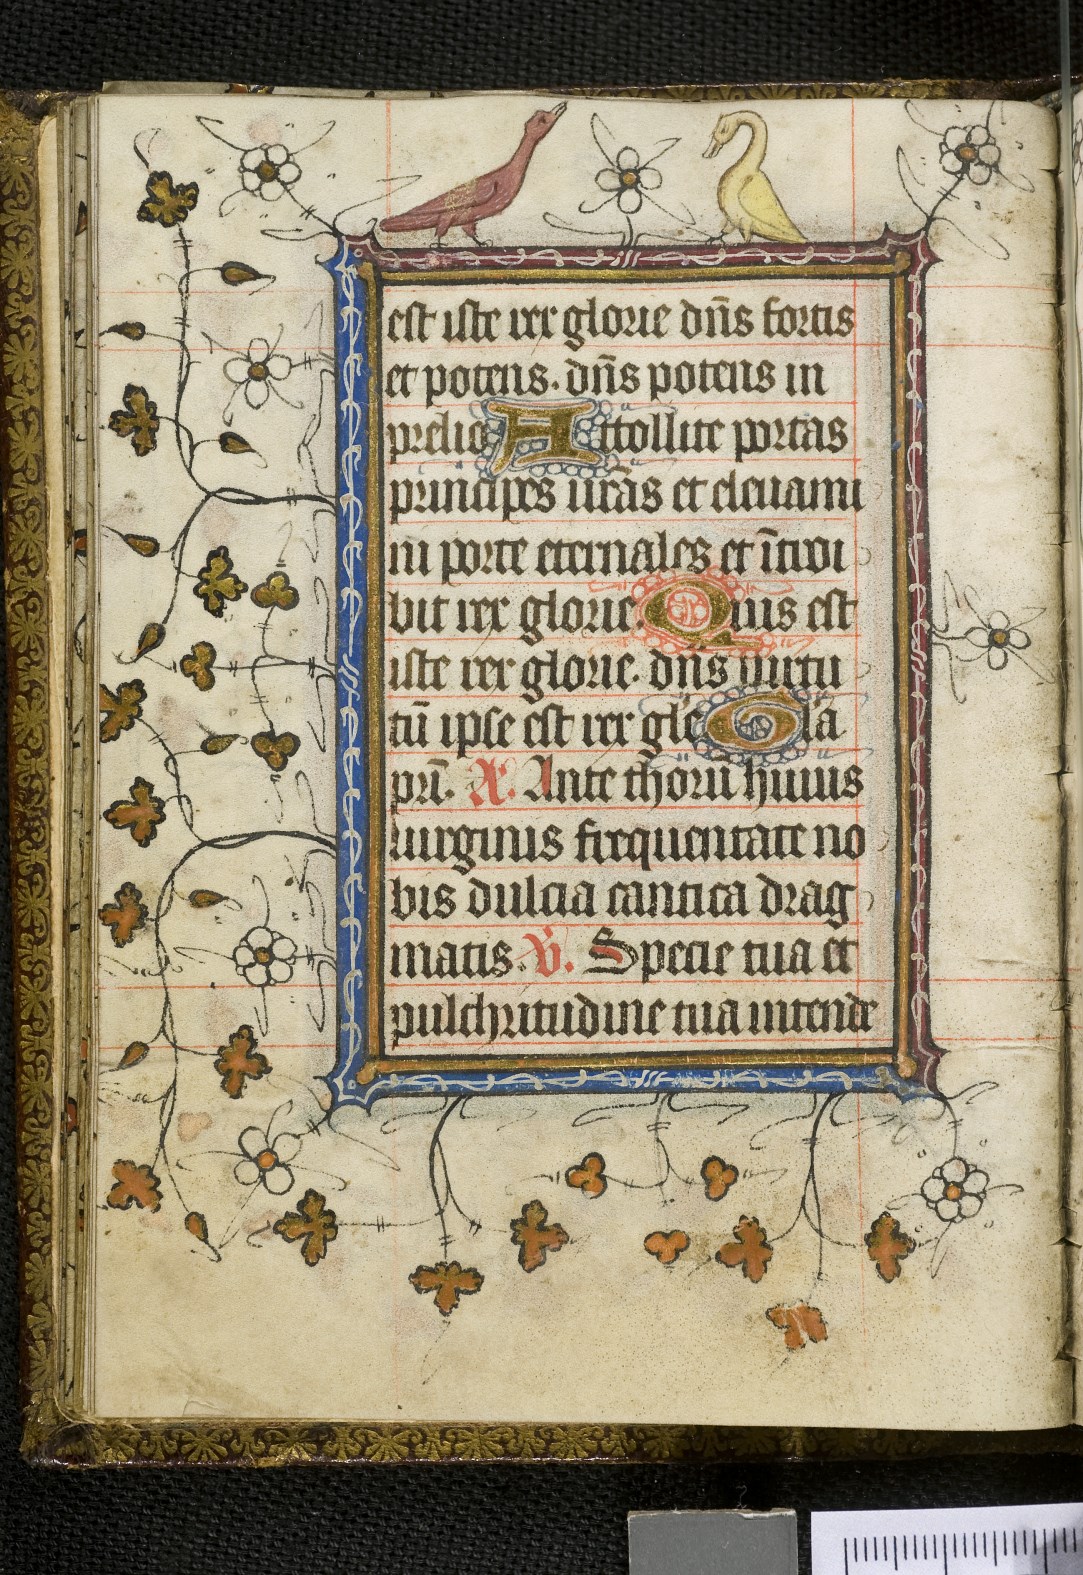 est iste rex glorie dñs fortis
et potens. dñs potens in
prelio Attollite portas
principes ur̃as et eleuami
ni porte eternales et ītroi
bit rex glorie. Quis est
iste rex glorie. dñs uirtu
tū ipse est rex gl'e Gl'a
pr̄i. A'. Ante thorū huius
uirginis frequentate no
bis dulcia cantica drag
matis. V̄. Specie tua et
pulchritudine tua intende